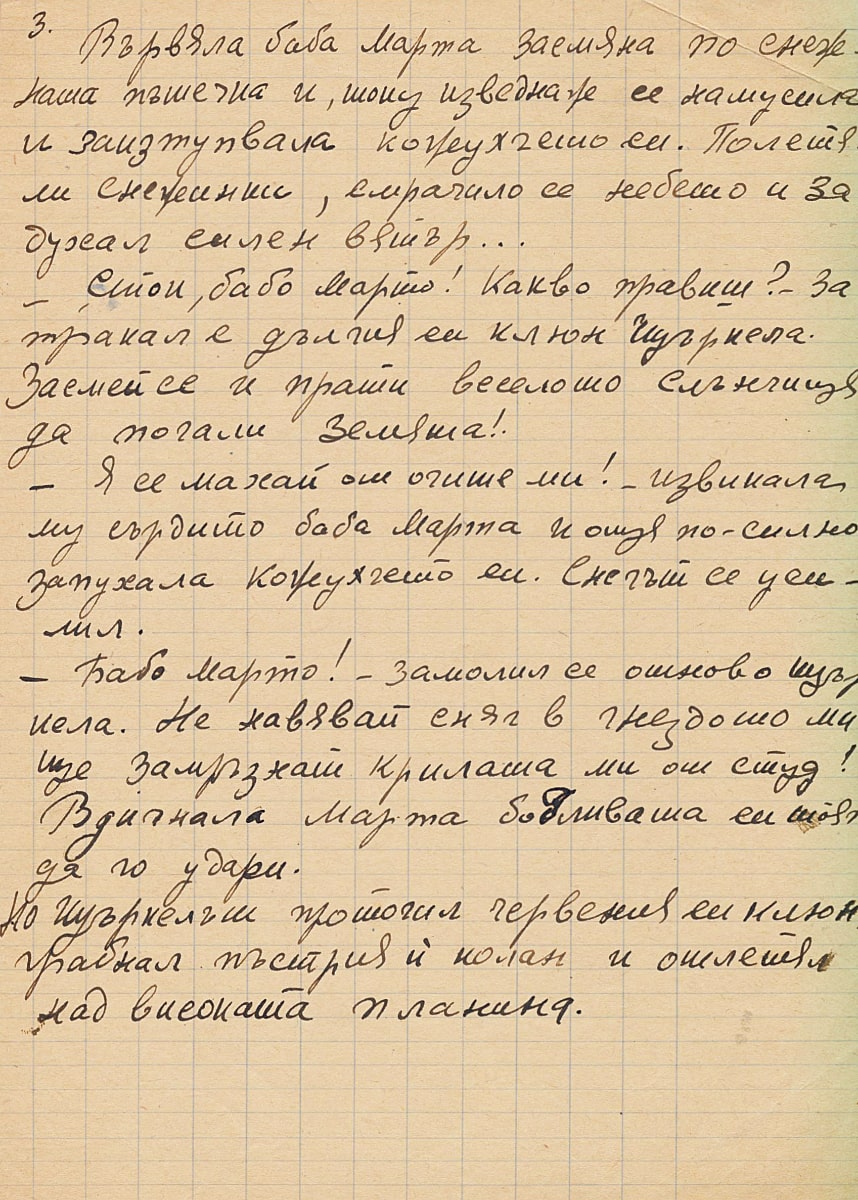 3.
Вървяла баба Марта засмяна по снеж-
ната пътечка и, току изведнаж се намусила
и заизтупвала кожухчето си. Полетя
ли снежинки, смрачило се небето и за
духал силен вятър...
– Стои, бабо Марто! Какво правиш? – За
тракал с дългия си клюн Щъркела.
Засмей се и прати веселото слънчице
да погали земята!
– Я се махай от очите ми! – извикала
му сърдито баба Марта и още по-силно
запухала кожухчето си. Снегът се уси-
лил.
– Бабо Марто! – замолил се отново щър
кела. Не навявай сняг в гнездото ми
ще замръзнат крилата ми от студ!
Вдигнала Марта бодливата си тояг
да го удари.
Но Щъркелът проточил червения си клюн,
грабнал пъстрия й колан и отлетял
над високата планина.